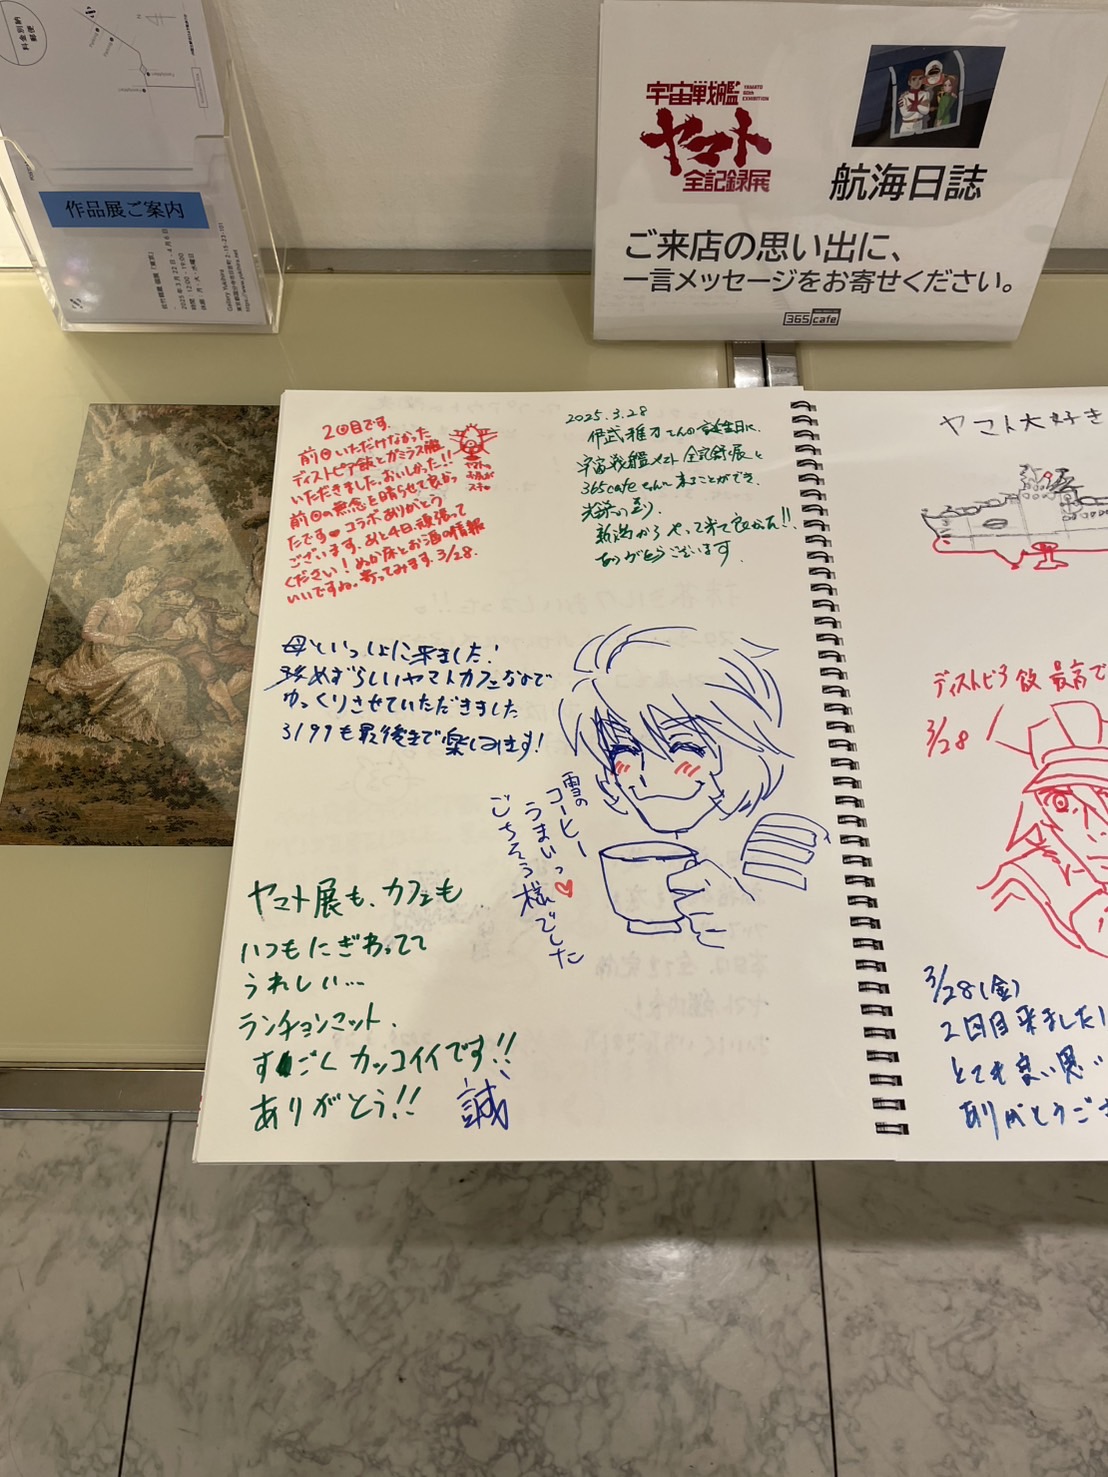 料金別納
郵便
作品展ご案内
2025年3月22日-4月6日
時間 12:00-19:00
Gallery Yukihira
宇宙戦艦
YAMATO
50th
EXHIBITION
ヤマト
全記録展
航海日誌
ご来店の思い出に、
一言メッセージをお寄せください。
365cafe
2回目です。
前回いただけなかった
ディストピア飯とガミラス艦
いただきました。おいしかった!!
前回の無念を晴らせて良かっ
たです コラボありがとう
ございます。あと4日、頑張って
ください!ぬか床とお酒の情報
いいですね。寄ってみます。3/28.
2025.3.28
伊武雅刀さんの誕生日に、
宇宙戦艦ヤマト全記録展と
365cafeさんに来ることができ、
光栄の至り.
新潟からやって来て良かった!!
ありがとうございます.
母といっしょに来ました!
めずらしいヤマトカフェなので
ゆっくりさせていただきました
3199も最後まで楽しみます!
雪の
コーヒー
うまいっ♡
ごちそう様でした
ヤマト展も、カフェも
いつもにぎわってて
うれしい…
ランチョンマット、
すごくカッコイイです!!
ありがとう!! 誠
ヤマト大好き
ディストピア飯 最高で
3/28
3/28(金)
2日目来ました!
とても良い思い
ありがとうござ